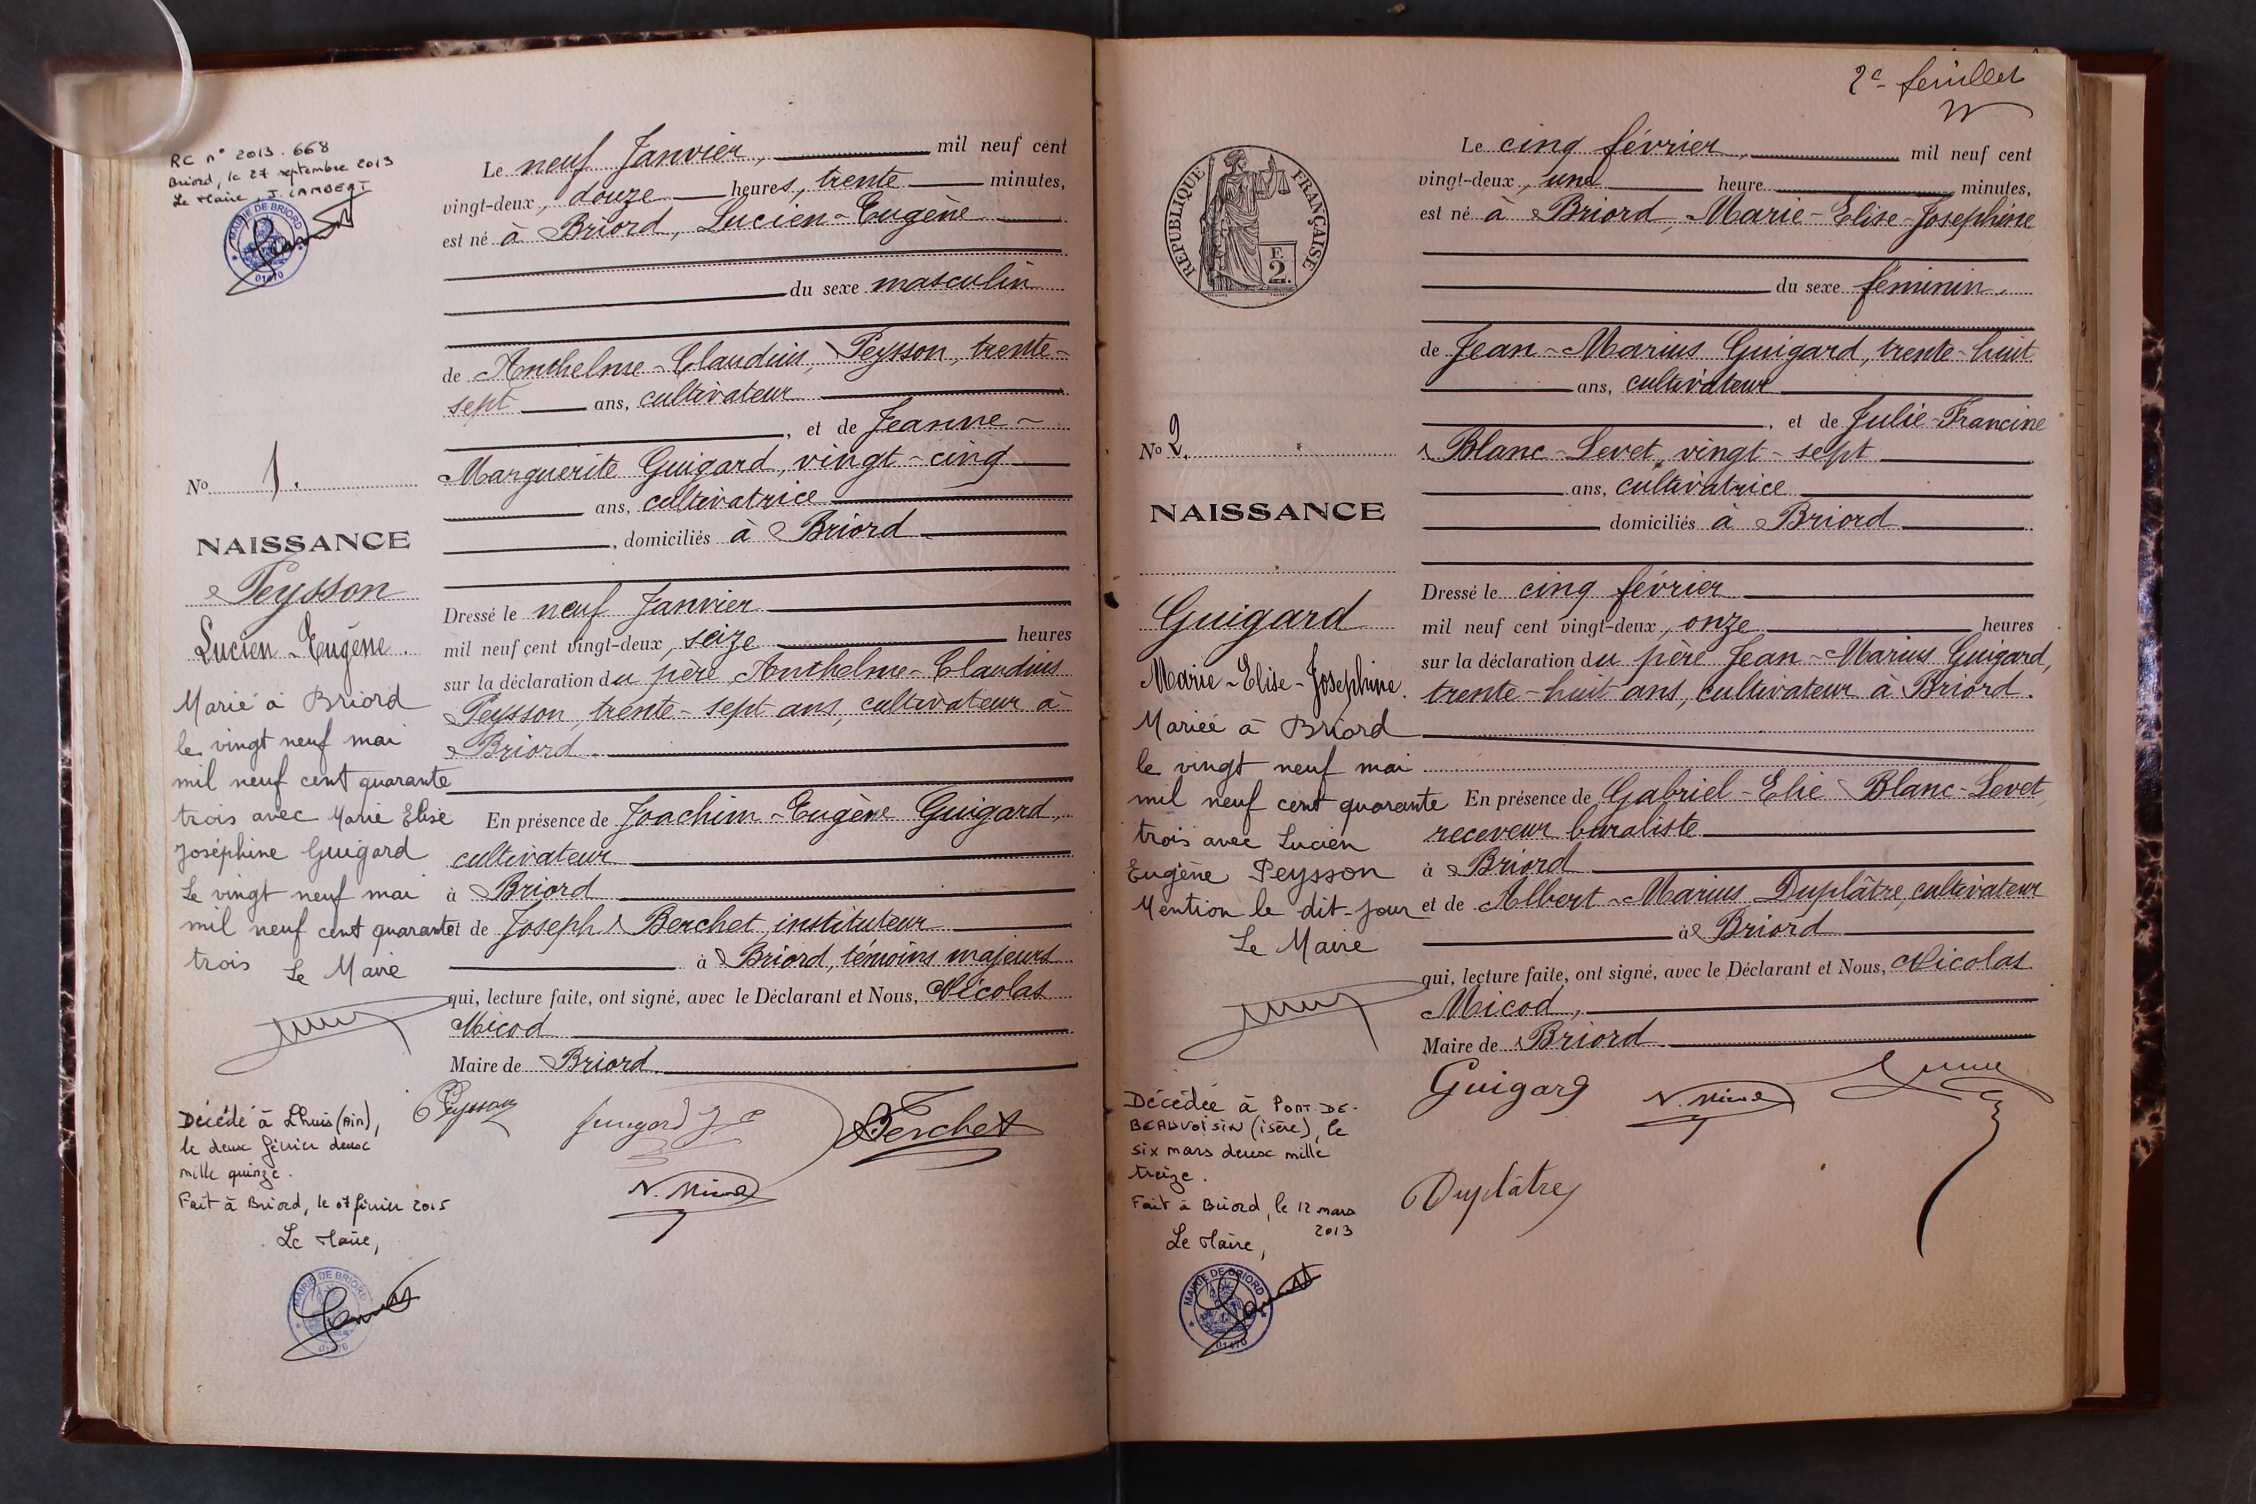 RC n° 2013.668
Briord, le 27 septembre 2013
Le Maire, J. LAMBERT
MAIRIE DE BRIORD
01470
Le neuf Janvier, mil neuf cent
vingt-deux, douze heures, trente minutes,
est né à Briord, Lucien-Eugène
du sexe masculin
de Anthelme-Claudius Peysson, trente-
sept ans, cultivateur
, et de Jeanne-
Marguerite Guigard, vingt-cinq
ans, cultivatrice
, domiciliés à Briord
Dressé le neuf Janvier
mil neuf cent vingt-deux, seize heures
sur la déclaration du père Anthelme-Claudius
Peysson, trente-sept ans, cultivateur à
Briord
En présence de Joachim-Eugène Guigard,
cultivateur
à Briord
et de Joseph Berchet, instituteur
à Briord, témoins majeurs
qui, lecture faite, ont signé, avec le Déclarant et Nous, Nicolas
Micod
Maire de Briord.
No 1.
NAISSANCE
Peysson
Lucien-Eugène.
Marié à Briord
le vingt neuf mai
mil neuf cent quarante
trois avec Marie Elise
Joséphine Guigard
Le vingt neuf mai
mil neuf cent quarante
trois Le Maire
Décédé à Lhuis (Ain),
le deux février deux
mille quinze.
Fait à Briord, le 07 février 2015
Le Maire,
MAIRIE DE BRIORD
01470
Peysson
Guigard J E
Berchet
N. Micod
2e feuillet
RÉPUBLIQUE FRANÇAISE
F.
2.
Le cinq février, mil neuf cent
vingt-deux, une heure minutes,
est né à Briord, Marie-Elise-Josephine
du sexe féminin.
de Jean-Marius Guigard, trente-huit
ans, cultivateur
, et de Julie-Francine
Blanc-Levet, vingt-sept
ans, cultivatrice
domiciliés à Briord
Dressé le cinq février
mil neuf cent vingt-deux, onze heures
sur la déclaration du père Jean-Marius Guigard,
trente-huit ans, cultivateur à Briord.
En présence de Gabriel-Elie Blanc-Levet,
receveur buraliste
à Briord
et de Albert-Marius Duplâtre, cultivateur
à Briord
qui, lecture faite, ont signé, avec le Déclarant et Nous, Nicolas
Micod,
Maire de Briord
No 2.
NAISSANCE
Guigard
Marie-Elise-Josephine.
Mariée à Briord
le vingt neuf mai
mil neuf cent quarante
trois avec Lucien
Eugène Peysson
Mention le dit-jour
Le Maire
Décédée à PONT-DE-
BEAUVOISIN (isère), le
six mars deux mille
treize.
Fait à Briord, le 12 mars
2013
Le Maire,
MAIRIE DE BRIORD
01470
Guigard
N. Micod
Duplâtre